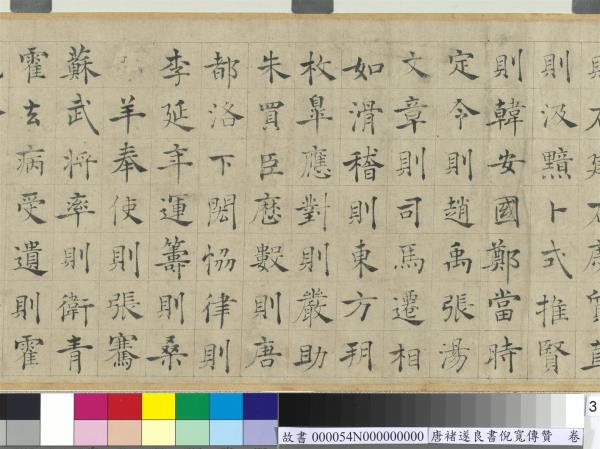 則石建石慶質直
則汲黯卜式推賢
則韓安國鄭當時
定令則趙禹張湯
文章則司馬遷相
如滑稽則東方朔
枚皐應對則嚴助
朱買臣厯數則唐
都洛下閎恊律則
李延年運籌則桑
羊奉使則張騫
蘇武將率則衛青
霍去病受遺則霍
3
故書 000054N000000000 唐褚遂良書倪寬傳贊 卷